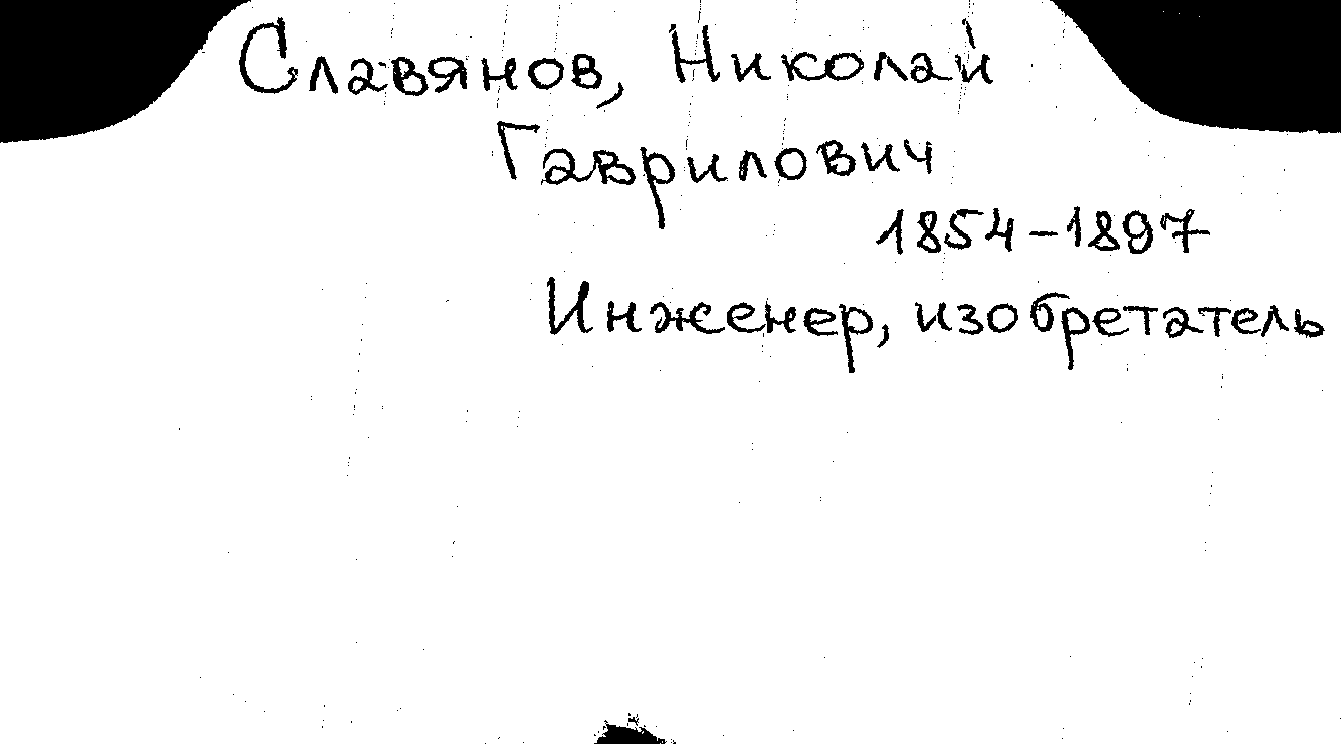 Славянов, Николай
Гаврилович
1854-1897
Инженер, изобретатель